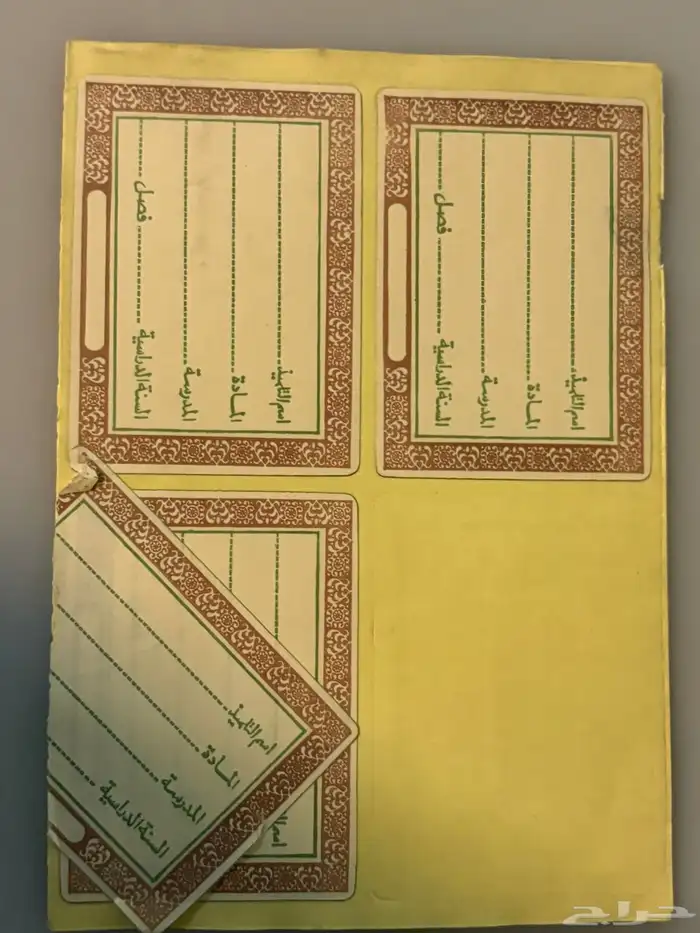 اسم التلميذ
المادة
المدرسة
السنة الدراسية فصل
اسم التلميذ
المادة
المدرسة
السنة الدراسية فصل
اسم التلميذ
المادة
المدرسة
السنة الدراسية
حراج